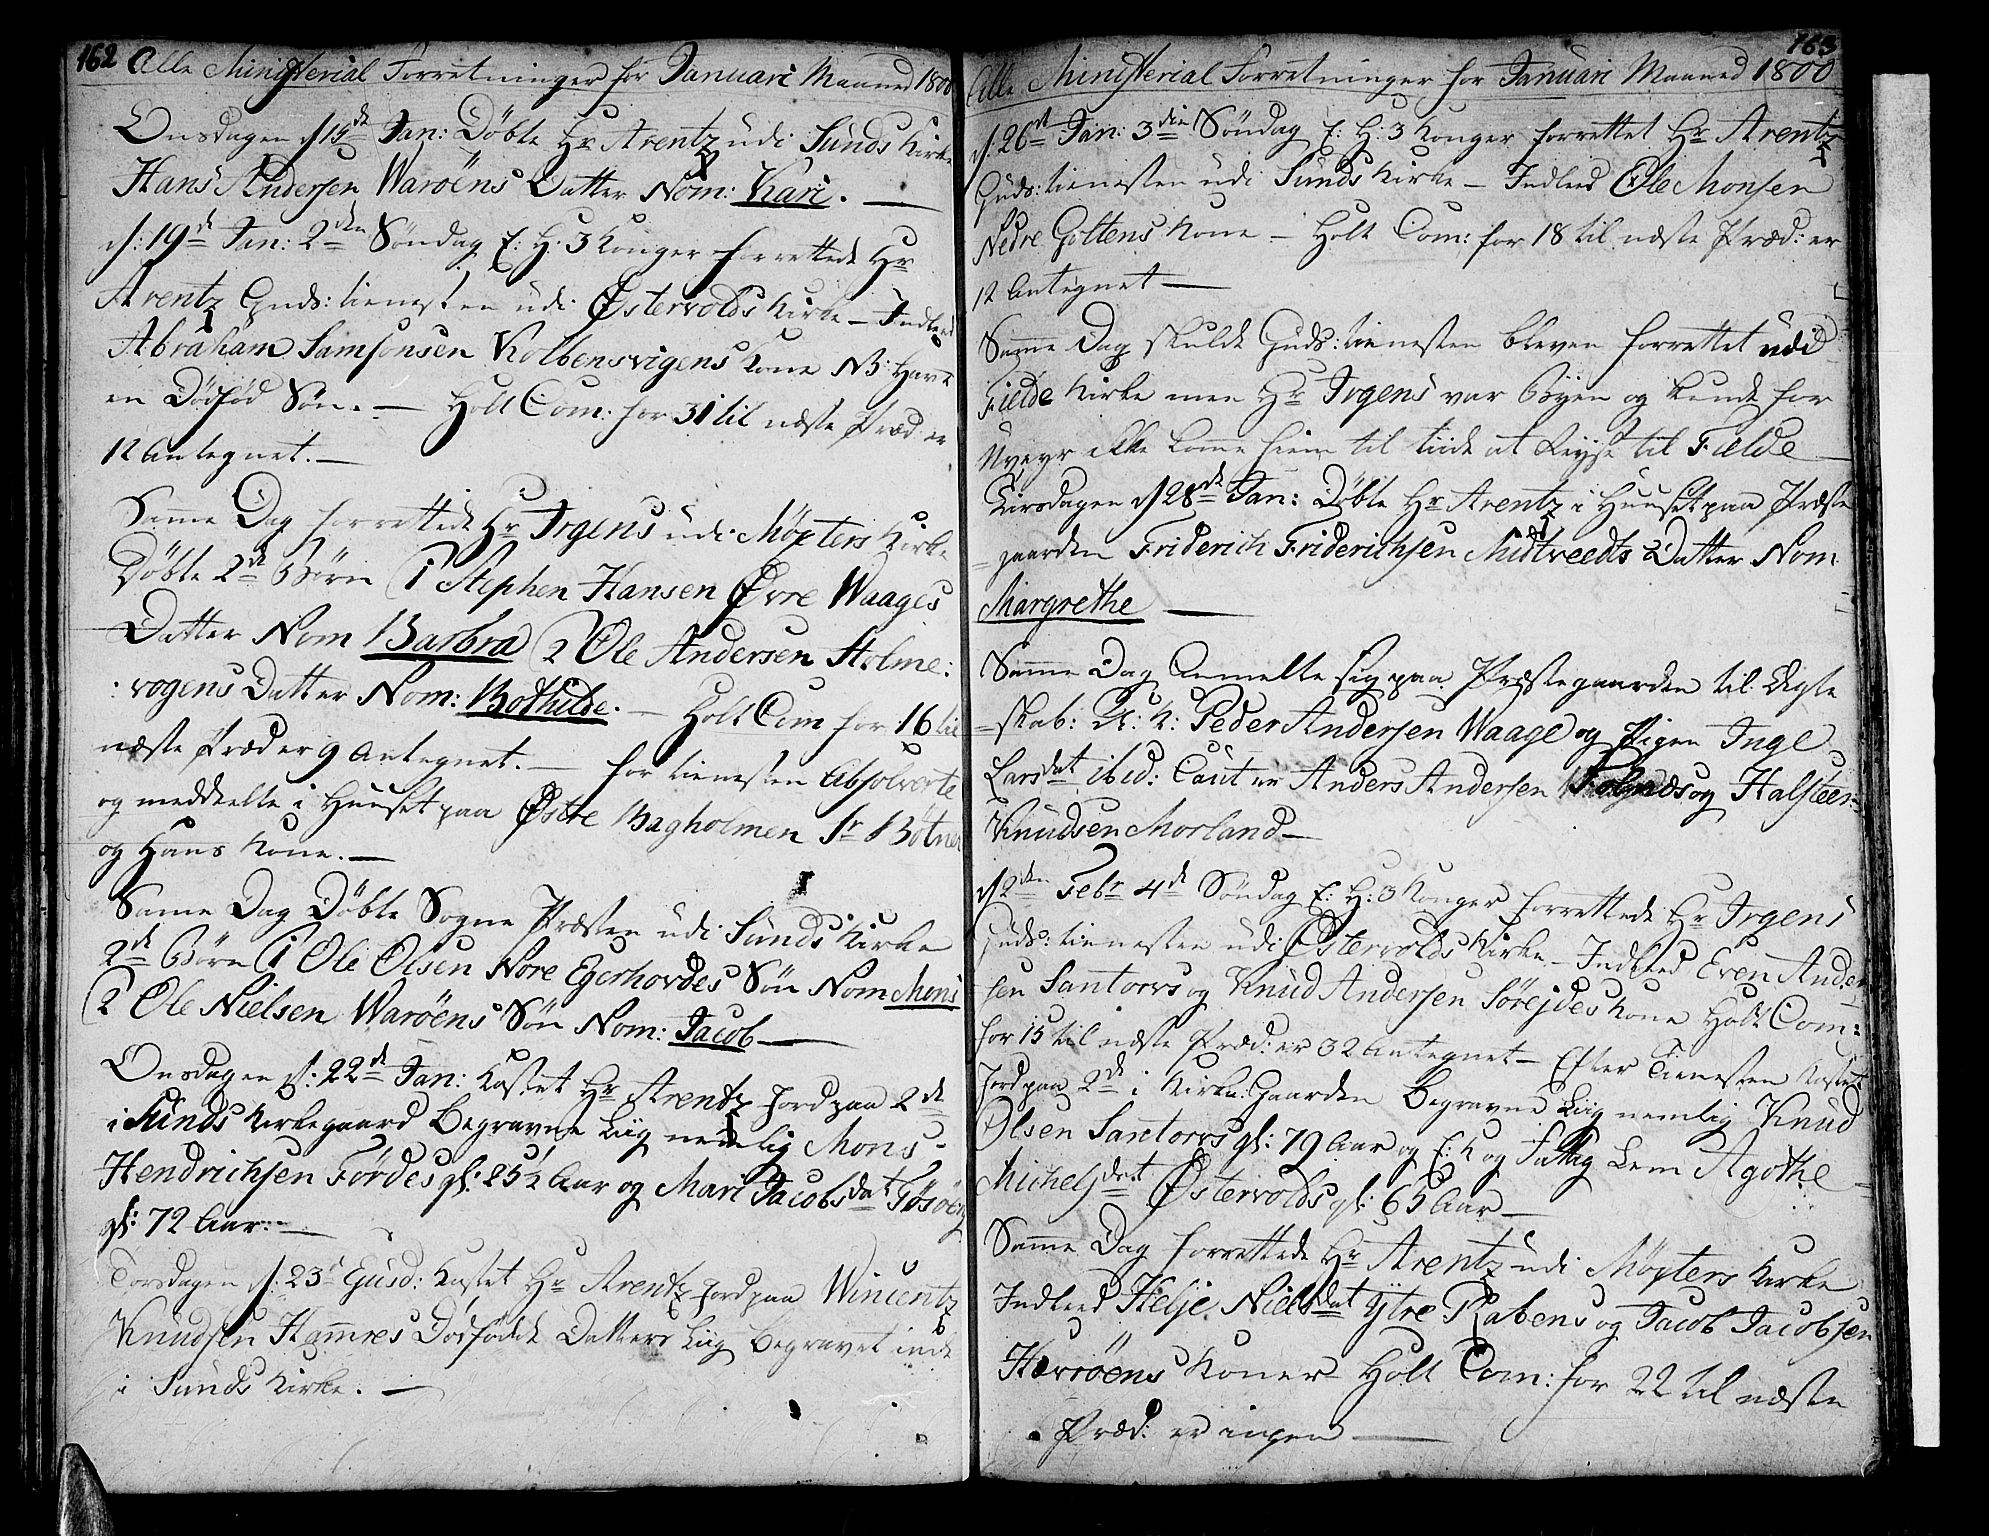 162 Alle Ministerial Forretninger for Januari Maaned 1800
Onsdagen d 15de Jan: Døbte Hr Arentz udi Sunds Kirke
Hans Andersen Warøens Datter Nom: Kari. —
d: 19de Jan: 2den Søndag E: H: 3 Konger forrettede Hr
Arentz Guds: tienesten udi Østervolds Kirke — Indleed
Abraham Samsonsen Kolbensvigens Kone NB: Havt
en Dødfød Søn. — Holt Com: for 31 til næste Præd: er
12 Antegnet. —
Same Dag forrettede Hr Irgens udi Møxters Kirke
Døbte 2de Børn (1 Stephen Hansen Øvre Waages
Datter Nom Barbra (2 Ole Andersen Holme:
:vogens Datter Nom: Bothilde. — Holt Com for 16 til
næste Præd er 9 Antegnet. — for tienesten Absolverte
og meddeelte i Huuset paa Østre Bagholmen Sr Bøtner
og Hans Kone. —
Same Dag Døbte Sogne Præsten udi Sunds Kirke
2de Børn (1 Ole Olsen Nore Egerhovdes Søn Nom Mons
(2 Ole Nielsen Warøens Søn Nom: Jacob —
Onsdagen d: 22de Jan: Kastet Hr Arentz Jord paa 2de
i Sunds Kirkegaard Begravne Liig nemlig Mons
Hendrichsen Førdes gl: 25½ Aar og Mari Jacobsdat Tøsøen
gl: 72 Aar: —
Torsdagen d: 23de Ejusd: Kastet Hr Arentz Jord paa Wincentz
Knudsen Hamres Dødfødde Datters Liig Begravet inde
i Sunds Kirke. —
163
Alle Ministerial Forretninger for Januari Maaned 1800
d: 26de Jan: 3die Søndag E: H: 3 Konger forrettet Hr Arentz
Guds: tienesten udi Sunds Kirke — Indleed Ole Monsen
Nedre Gottens Kone — Holt Com: for 18 til næste Præd: er
12 Antegnet —
Samme Dag skulde Guds: tienesten bleven forrettet udi
Fielde Kirke men Hr Irgens var Byen og kunde for
Uveyr ikke kome hiem til tiide at Reyse til Fielde —
Tirsdagen d 28de Jan: Døbte Hr Arentz i Huuset paa Præste
=gaarden Friderich Friderichsen Midtveedts Datter Nom
Margrethe —
Samme Dag Anmelte sig paa Præstegaarden til Ægte
=skab: U: K: Peder Andersen Waage og Pigen Inge
Larsdat ibid: Caut er Anders Andersen og Halsteen
Knudsen Morland —
d 2den Febr 4de Søndag E: H: 3 Konger forrettede Hr Irgens
Guds: tienesten udi Østervolds Kirke — Indleed Even Ander
sen Santorvs og Knud Andersen Sørejdes Kone Holt Com:
for 15 til næste Præd: er 32 Antegnet — Efter Tienesten Kastet
Jord paa 2de i Kirke: Gaarden Begravne Liig nemlig Knud
Olsen Santorvs gl: 79 Aar og E: K og Fattig Lem Agothe
Michelsdat Østervolds gl: 65 Aar —
Samme Dag forrettede Hr Arentz udi Møxters Kirke
Indleed Helje Nielsdat Ytre Rabens og Jacob Jacobsen
Hævrøens Koner — Holt Com: for 22 til næste
Præd: er ingen —